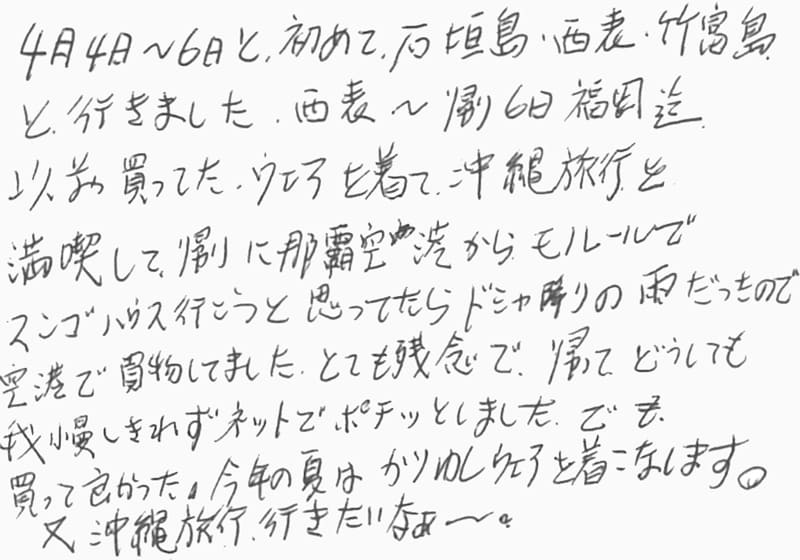 4月4日〜6日と、初めて、石垣島・西表・竹富島
と、行きました。西表〜帰り6日福岡迄
以前買ってた、ウェアを着て、沖縄旅行と
満喫して、帰りに那覇空港からモノレールで
スンゴハウス行こうと思ってたらドシャ降りの雨だったので
空港で買物してました。とても残念で、帰って、どうしても
我慢しきれずネットでポチッとしました。でも、
買って良かった。今年の夏はかりゆしウェアを着こなします。
又沖縄旅行、行きたいなぁ〜。